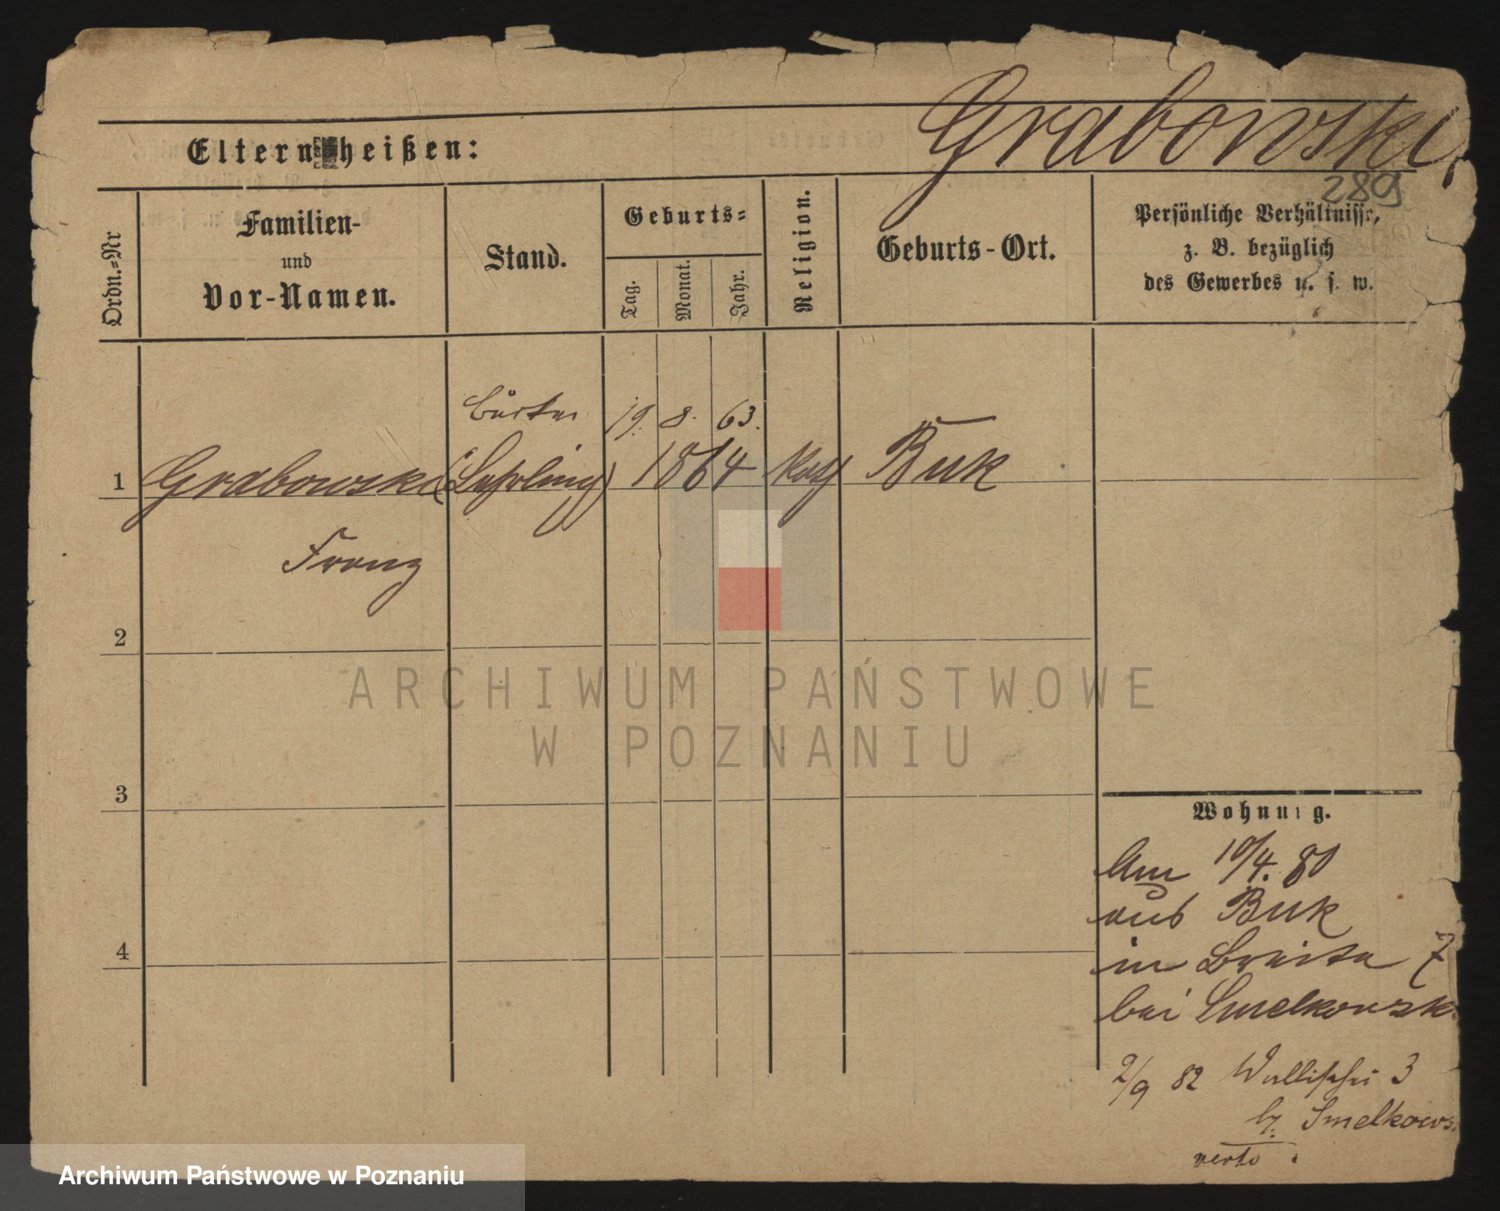 Grabowski
Eltern heißen:
289
Ordn.-Nr
Familien-
und
Vor-Namen.
Stand.
Geburts-
Tag.
Monat.
Jahr.
Religion.
Geburts-Ort.
Persönliche Verhältnisse,
z. B. bezüglich
des Gewerbes u. s. w.
19. 8. 63.
1 Grabowski (Lehrling) 1864 Kath Buk
Franz
2
ARCHIWUM PAŃSTWOWE
W POZNANIU
3
Wohnung.
Am 10/4. 80
aus Buk
4
in Breite 7
bei Smelkowsk
2/9 82 Wallischei 3
b. Smelkows
verte
Archiwum Państwowe w Poznaniu